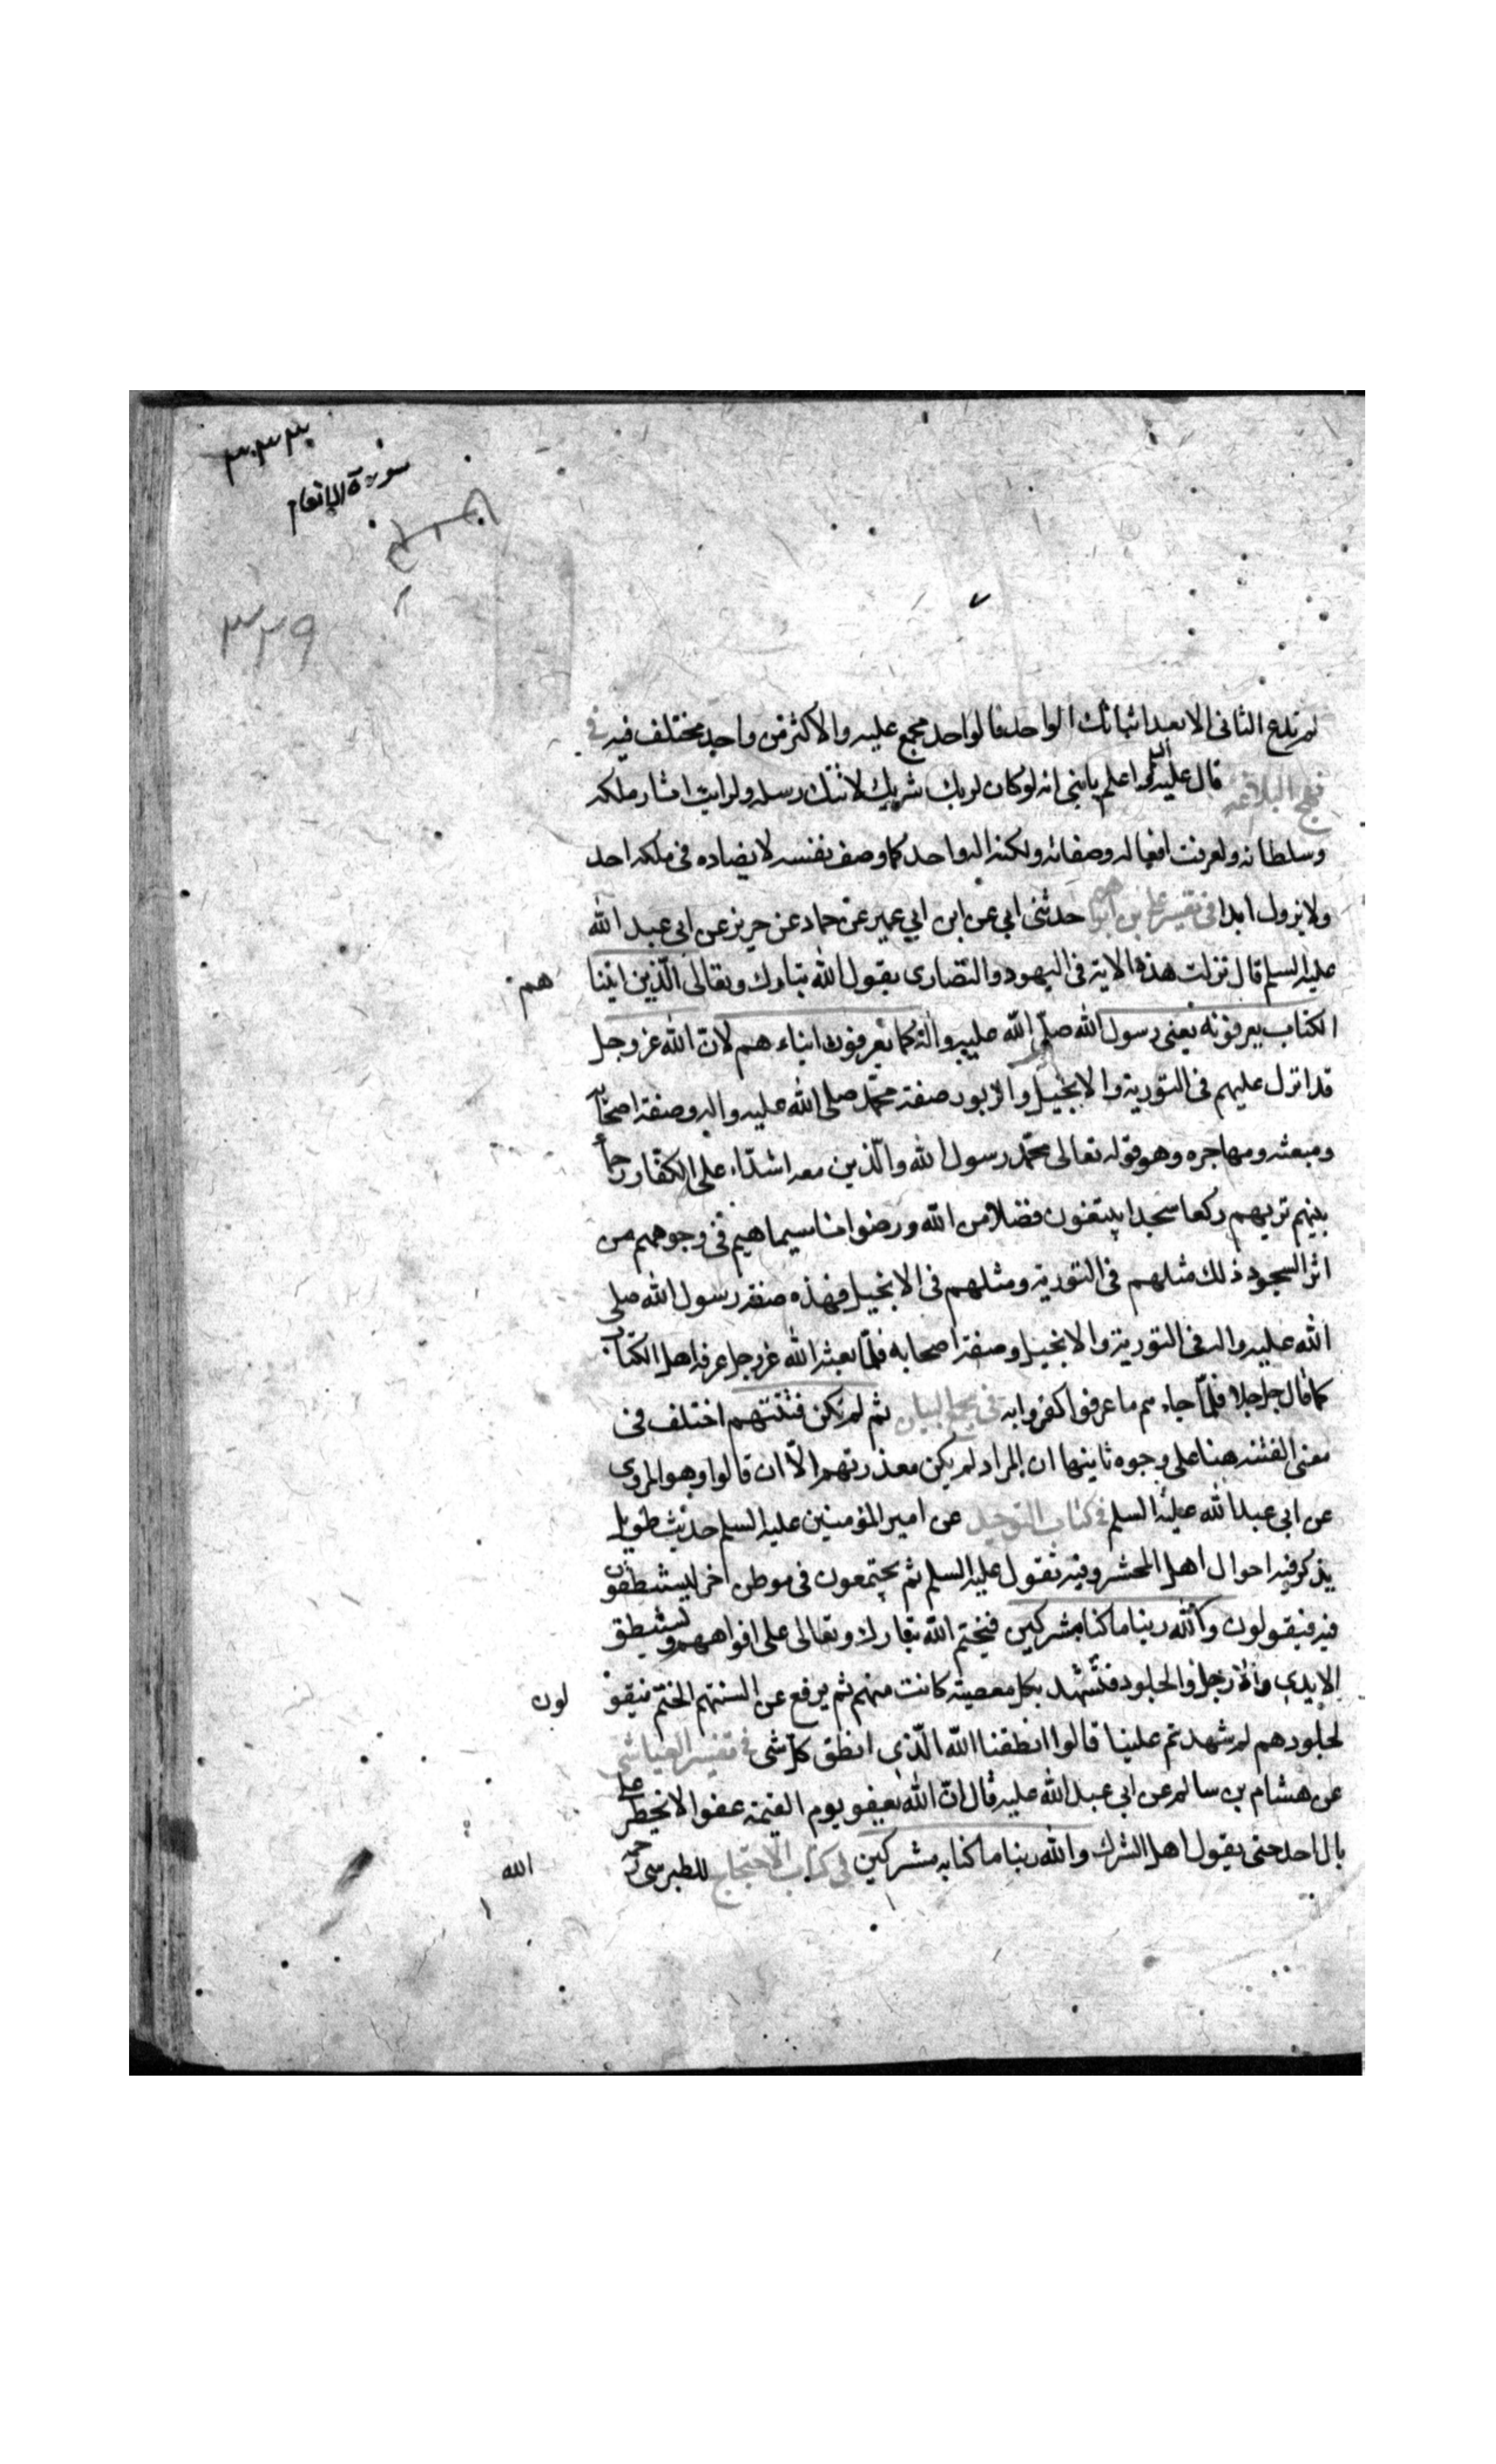 سورة الانعام
٣٢٩
لم تدع الثانى الا بعد اثباتك الواحد فالواحد مجمع عليه والاكثر من واحد مختلف فيه فى
نهج البلاغة قال عليه السلم اعلم يا بنى انه لو كان لربك شريك لاتتك رسله ولرايت اثار ملكه
وسلطانه ولعرفت افعاله وصفاته ولكنه اله واحد كما وصف نفسه لا يضاده فى ملكه احد
ولا يزول ابدا فى تفسير على بن ابراهيم حدثنى ابي عن ابن ابي عمير عن حماد عن حريز عن ابى عبد الله
عليه السلم قال نزلت هذه الاية فى اليهود والنصارى يقول الله تبارك وتعالى الّذين اتينا هم
الكتاب يعرفونه يعنى رسول الله صلّى الله عليه واله كما يعرفون ابناء هم لانّ الله عز وجل
قد انزل عليهم فى التورية والانجيل والزبور صفة محمّد صلى الله عليه واله وصفة اصحابه
ومبعثه ومهاجره وهو قوله تعالى محمّد رسول الله والّذين معه اشدّاء على الكفّار رحماء
بينهم تريهم ركعا سجدا يبتغون فضلا من الله ورضوانا سيماهم فى وجوههم من
اثر السجود ذلك مثلهم فى التورية ومثلهم فى الانجيل فهذه صفة رسول الله صلى
الله عليه واله فى التورية والانجيل وصفة اصحابه فلمّا بعثه الله عز وجل عرفه اهل الكتاب
كما قال جل جلا فلمّا جاءهم ما عرفوا كفروا به فى مجمع البيان ثم لم تكن فتنتهم اختلف فى
معنى الفتنه هنا على وجوه ثانيها ان المراد لم يكن معذرتهم الاّ ان قالوا وهو المروى
عن ابى عبد الله عليه السلم فى كتاب التوحيد عن امير المؤمنين عليه السلم حديث طويل
يذكر فيه احوال اهل المحشر وفيه يقول عليه السلم ثم يجتمعون فى موطن اخر ليستنطقون
فيه فيقولون والله ربنا ما كنا مشركين فيختم الله تبارك وتعالى على افواههم ويستنطق
الايدي والارجل والجلود فتشهد بكل معصية كانت منهم ثم يرفع عن السنتهم الختم فيقو لون
لجلودهم لم شهدتم علينا قالوا انطقنا الله الّذي انطق كل شى فى تفسير العياشي
عن هشام بن سالم عن ابي عبد الله عليه قال انّ الله يعفو يوم القيمة عفوا لا يخطر على
بال احد حتى يقول اهل الشرك والله ربنا ما كنا مشركين فى كتاب الاحتجاج للطبرسى رحمه الله